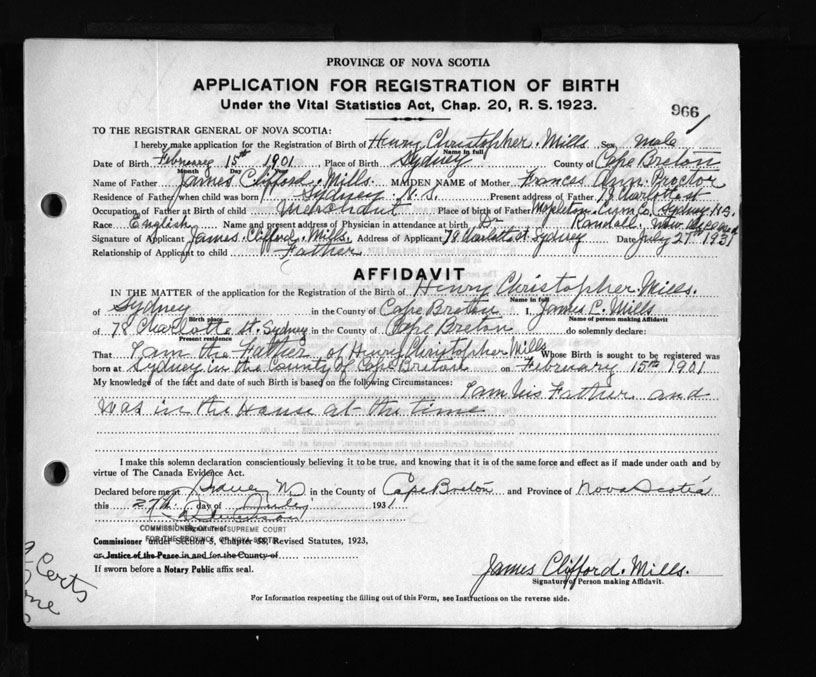 PROVINCE OF NOVA SCOTIA
APPLICATION FOR REGISTRATION OF BIRTH
Under the Vital Statistics Act, Chap. 20, R. S. 1923.
966
TO THE REGISTRAR GENERAL OF NOVA SCOTIA:
I hereby make application for the Registration of Birth of Henry Christopher. Mills Sex Male
Name in full
Date of Birth February 15th 1901 Place of Birth Sydney County of Cape Breton
Month Day Year
Name of Father James Clifford. Mills. MAIDEN NAME of Mother Frances Ann Proctor
Residence of Father when child was born Sydney N. S. Present address of Father 78 Charlotte st
Occupation of Father at Birth of child Merchant Place of birth of Father Mapleton. Cum Co. Sydney N.S.
Race English Name and present address of Physician in attendance at birth Dr Kendall,
Signature of Applicant James. Clifford. Mills. Address of Applicant 78 Charlotte st. Sydney Date July 27th 1931
Relationship of Applicant to child Father
AFFIDAVIT
IN THE MATTER of the application for the Registration of the Birth of Henry Christopher. Mills.
Name in full
of Sydney in the County of Cape Breton I, James C. Mills
Birth place Name of person making Affidavit
of 78 Charlotte st. Sydney in the County of Cape Breton do solemnly declare:
Present residence
That I am the Father of Henry Christopher Mills Whose Birth is sought to be registered was
born at Sydney in the County of Cape Breton on February 15th 1901
My knowledge of the fact and date of such Birth is based on the following Circumstances: I am his Father and
was in the House at the time
I make this solemn declaration conscientiously believing it to be true, and knowing that it is of the same force and effect as if made under oath and by
virtue of The Canada Evidence Act.
Declared before me at Sydney in the County of Cape Breton and Province of Nova Scotia
this 27th day of July 1931
Signature of
COMMISSIONER OF THE SUPREME COURT
FOR THE PROVINCE OF NOVA SCOTIA
Commissioner under Section 3, Chapter 38, Revised Statutes, 1923,
or Justice of the Peace in and for the County of
If sworn before a Notary Public affix seal.
James Clifford. Mills.
Signature of Person making Affidavit.
For Information respecting the filling out of this Form, see Instructions on the reverse side.
Certs